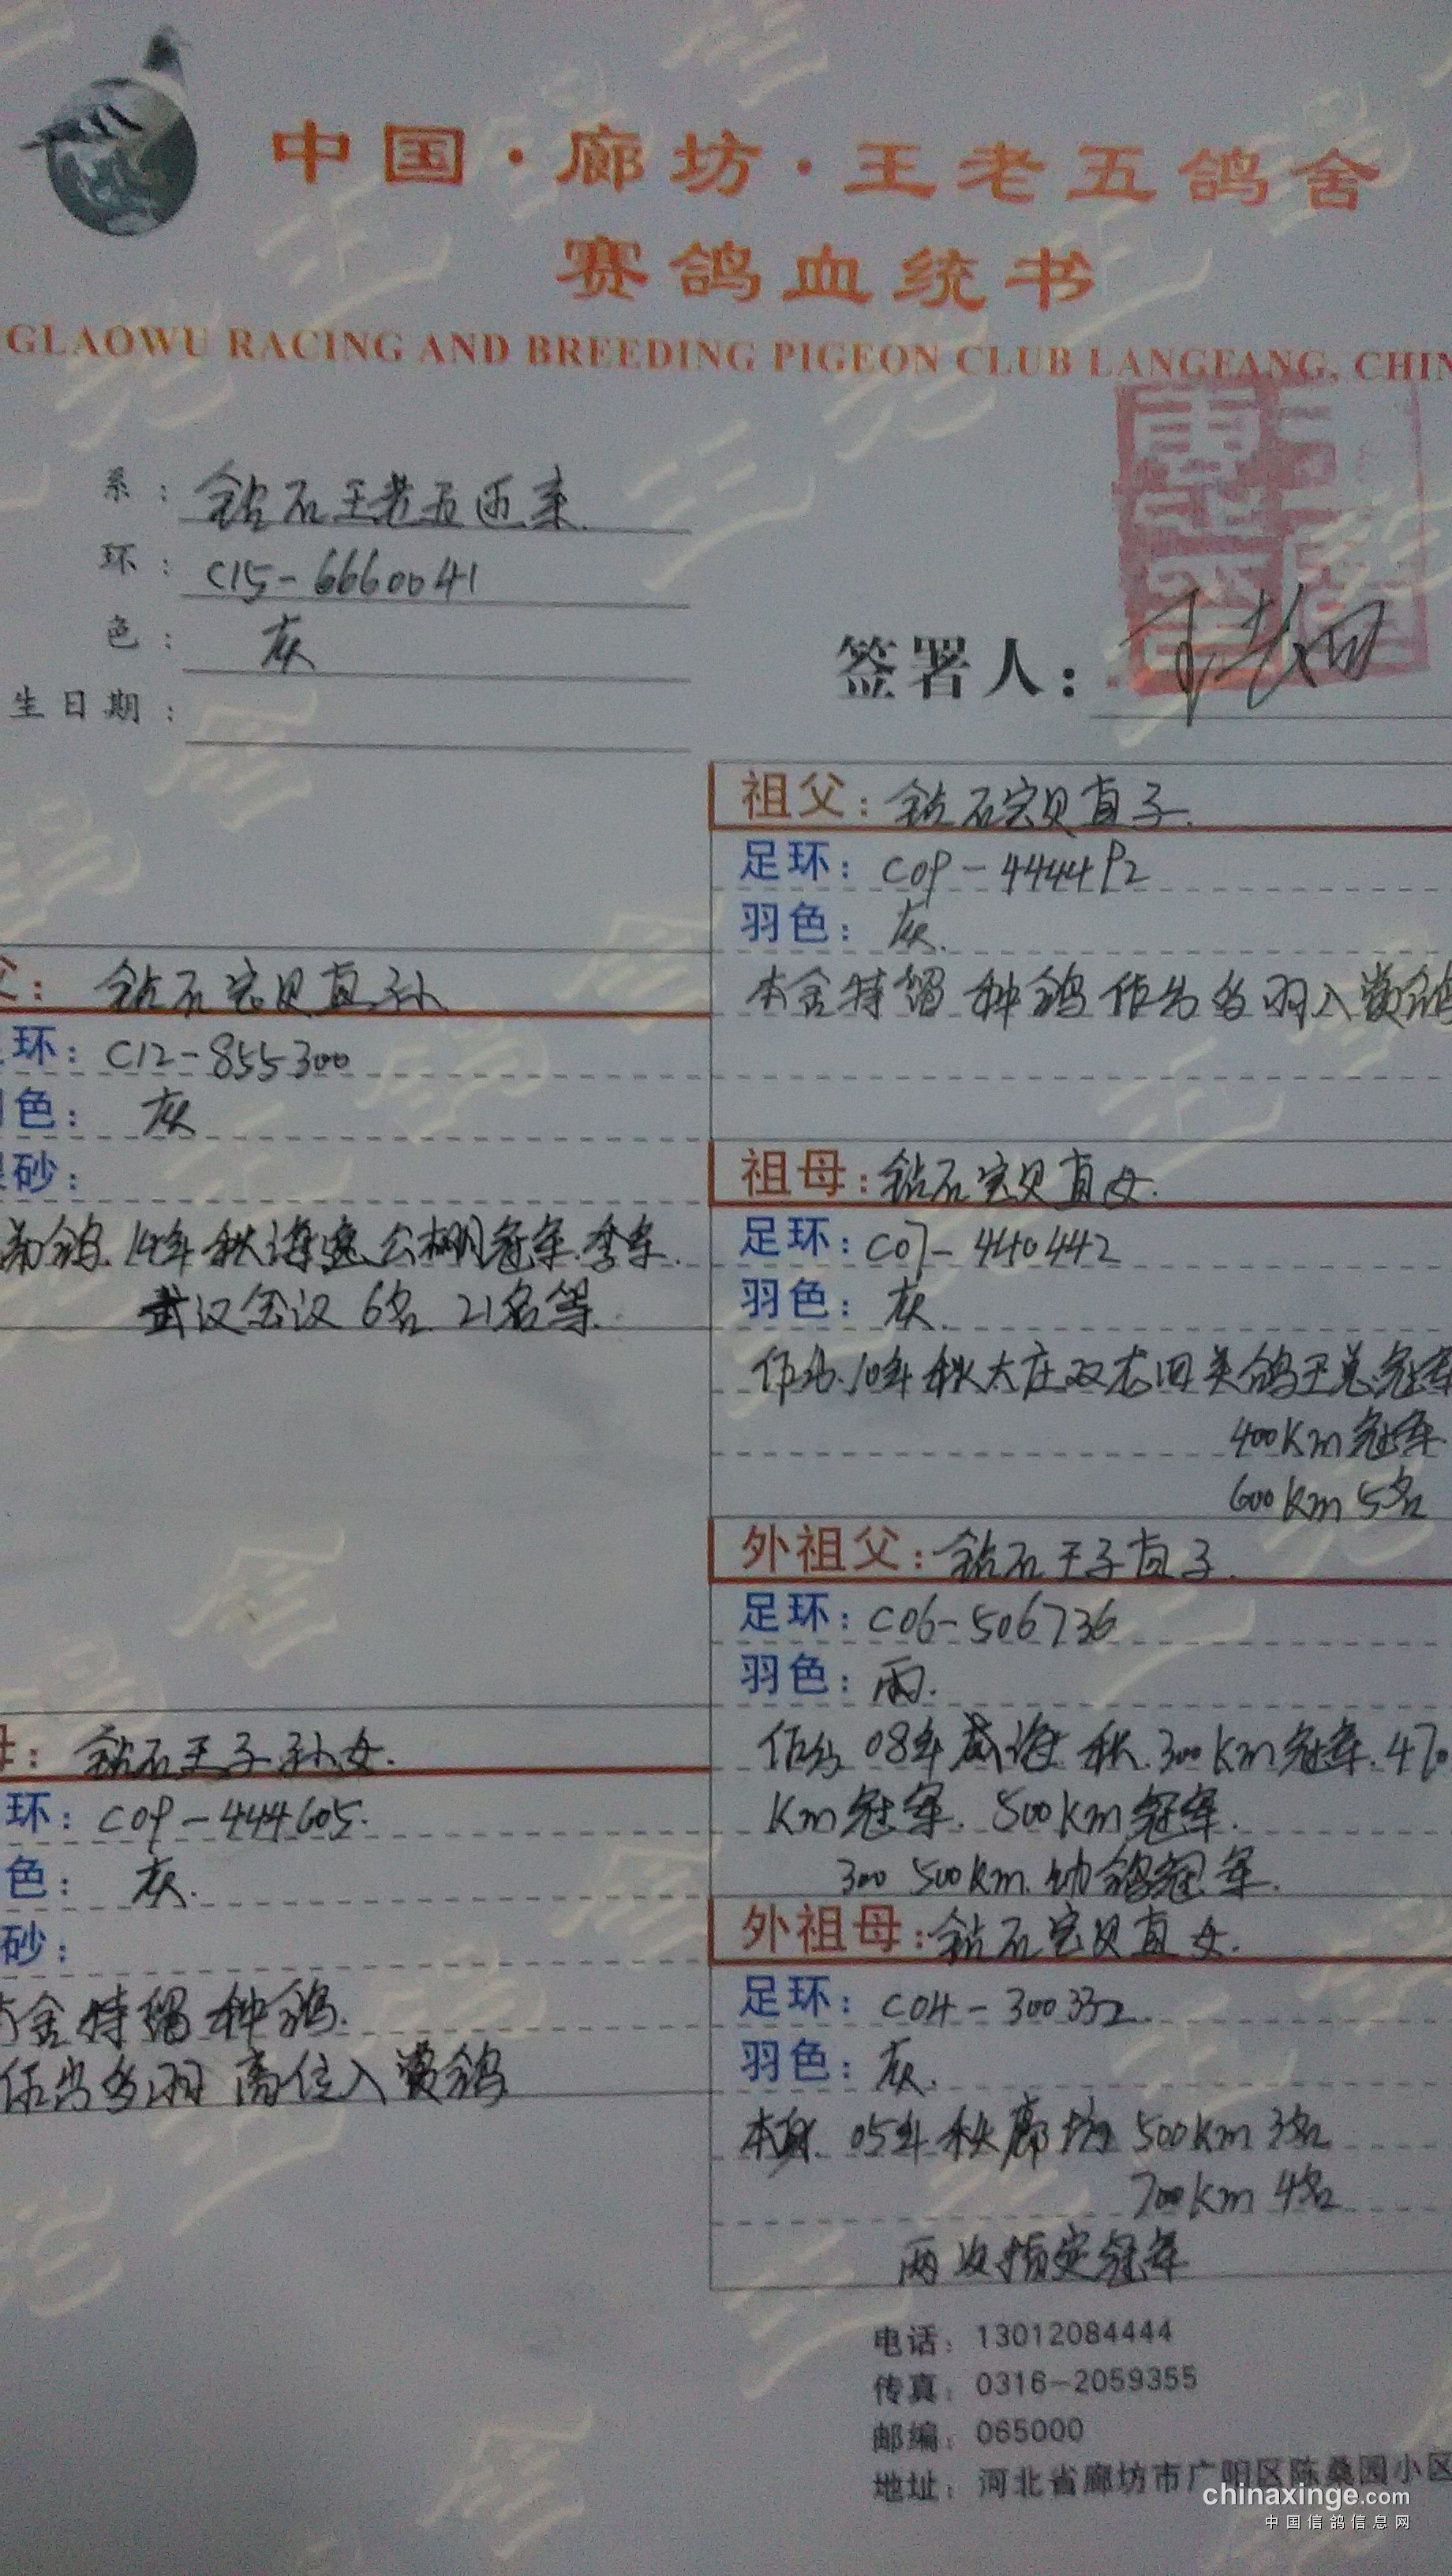 中国·廊坊·王老五鸽舍
赛鸽血统书
GLAOWU RACING AND BREEDING PIGEON CLUB LANGFANG, CHIN
系: 钻石王老五近亲.
环: C15-6660041
色: 灰
生日期:
签署人:
祖父: 钻石宝贝直子.
足环: C09-444492
羽色: 灰.
本舍特留种鸽 作出多羽入赏鸽
父: 钻石宝贝直孙
环: C12-855300
色: 灰
砂:
鸽. 14年秋海逸公棚冠军.季军.
武汉会议 6名 21名等.
祖母: 钻石宝贝直女.
足环: C07-440442
羽色: 灰.
作出.10年秋大庄双态四关鸽王总冠军
400Km冠军.
600Km 5名
外祖父: 钻石王子直子.
足环: C06-506736
羽色: 雨.
作出 08年威海秋.300Km冠军.470
Km冠军. 500Km冠军.
300 500Km.幼鸽冠军.
母: 钻石王子孙女.
环: C09-444605.
色: 灰.
砂:
本舍特留种鸽.
作出多羽高位入赏鸽
外祖母: 钻石宝贝直女.
足环: C04-300332.
羽色: 灰.
本身 05年秋廊坊 500Km 3名
700Km 4名
两次指定冠军
电话: 13012084444
传真: 0316-2059355
邮编: 065000
地址: 河北省廊坊市广阳区陈桑园小区
chinaxinge.com
中国信鸽信息网